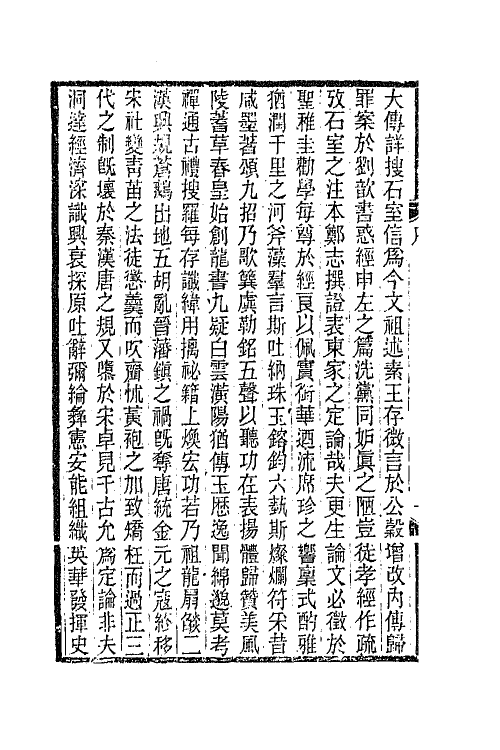 大傳詳搜石室信爲今文祖述素王存微言於公穀增改內傳歸
罪案於劉歆書惑經申左之篇洗黨同妒眞之陋豈徒孝經作疏
攷石室之注本鄭志撰證表東家之定論哉夫更生論文必徵於
聖稚圭勸學每尊於經良以佩實銜華迺流席珍之響稟式酌雅
猶潤千里之河斧藻羣言斯吐納珠玉鎔鈞六埶斯燦爛符采昔
咸墨蓍頌九招乃歌簨虡勒銘五聲以聽功在表揚體歸贊美風
陵蓍草春皇始創龍書九疑白雲濆陽猶傳玉歷逸聞緜邈莫考
禪通古禮搜羅每存讖緯用摛祕籍上煥宏功若乃祖龍肩燄二
漢興規蒼鵝出地五胡亂晉藩鎮之禍旣奪唐統金元之寇紛移
宋社變靑苗之法徒懲羹而吹虀怵黃袍之加致矯枉而過正三
代之制旣壞於秦漢唐之規又隳於宋卓見千古允爲定論非夫
洞達經濟深識興衰探原吐辭彌綸彝憲安能組織英華發揮史
序